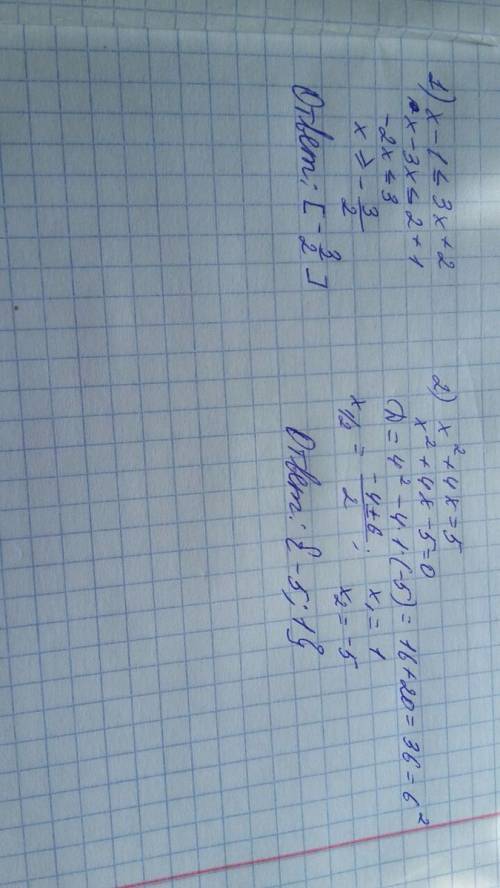 1) x - 1 ≤ 3x + 2
x - 3x ≤ 2 + 1
-2x ≤ 3
x ≥ - 3/2
Ответ: [- 3/2]
2) x² + 4x = 5
x² + 4x - 5 = 0
D = 4² - 4·1·(-5) = 16 + 20 = 36 = 6²
x1/2 = (-4±6)/2 ; x₁ = 1
x₂ = -5
Ответ: {-5; 1}